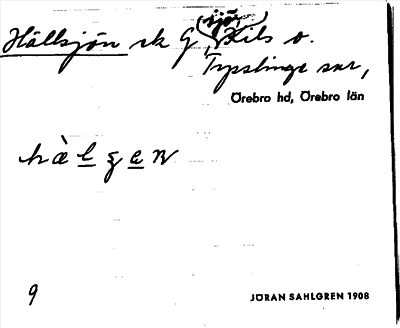 sjö,
Hällsjön ek G, Kils o.
Tysslinge snr,
Örebro hd, Örebro län
hàlʒən
9
JÖRAN SAHLGREN 1908